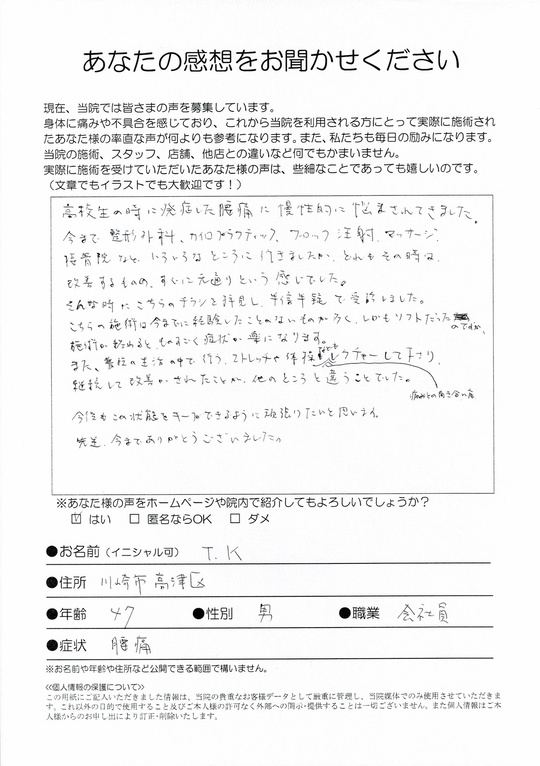 あなたの感想をお聞かせください
現在、当院では皆さまの声を募集しています。
身体に痛みや不具合を感じており、これから当院を利用される方にとって実際に施術され
たあなた様の率直な声が何よりも参考になります。また、私たちも毎日の励みになります。
当院の施術、スタッフ、店舗、他店との違いなど何でもかまいません。
実際に施術を受けていただいたあなた様の声は、些細なことであっても嬉しいのです。
（文章でもイラストでも大歓迎です！）
高校生の時に発症した腰痛に慢性的に悩まされてきました。
今まで整形外科、カイロプラクティック、ブロック注射、マッサージ、
接骨院など、いろいろなところに行きましたが、どれもその時は
改善するものの、すぐに元通りという感じでした。
そんな時にこちらのチラシを拝見し、半信半疑で受診しました。
こちらの施術は今までに経験したことのないものが多く、しかもソフトだった
のですが、
施術が終わると、ものすごく症状が楽になります。
また、普段の生活の中で行う、ストレッチや体操などもレクチャーして下さり、
継続して改善がされたことが、他のところと違うことでした。
痛みとの向き合い方
今後もこの状態をキープできるように頑張りたいと思います。
先生、今までありがとうございました。
※あなた様の声をホームページや院内で紹介してもよろしいでしょうか？
☑ はい □ 匿名ならOK □ ダメ
●お名前（イニシャル可） T.K
●住所 川崎市高津区
●年齢 47 ●性別 男 ●職業 会社員
●症状 腰痛
※お名前や年齢や住所など公開できる範囲で構いません。
≪個人情報の保護について≫
この用紙にご記入いただきました情報は、当院の貴重なお客様データとして厳重に管理し、当院媒体でのみ使用させていただきま
す。これ以外の目的で使用すること及びご本人様の許可なく外部への開示・提供することは一切ございません。また個人情報はご本
人様からのお申し出により訂正・削除いたします。